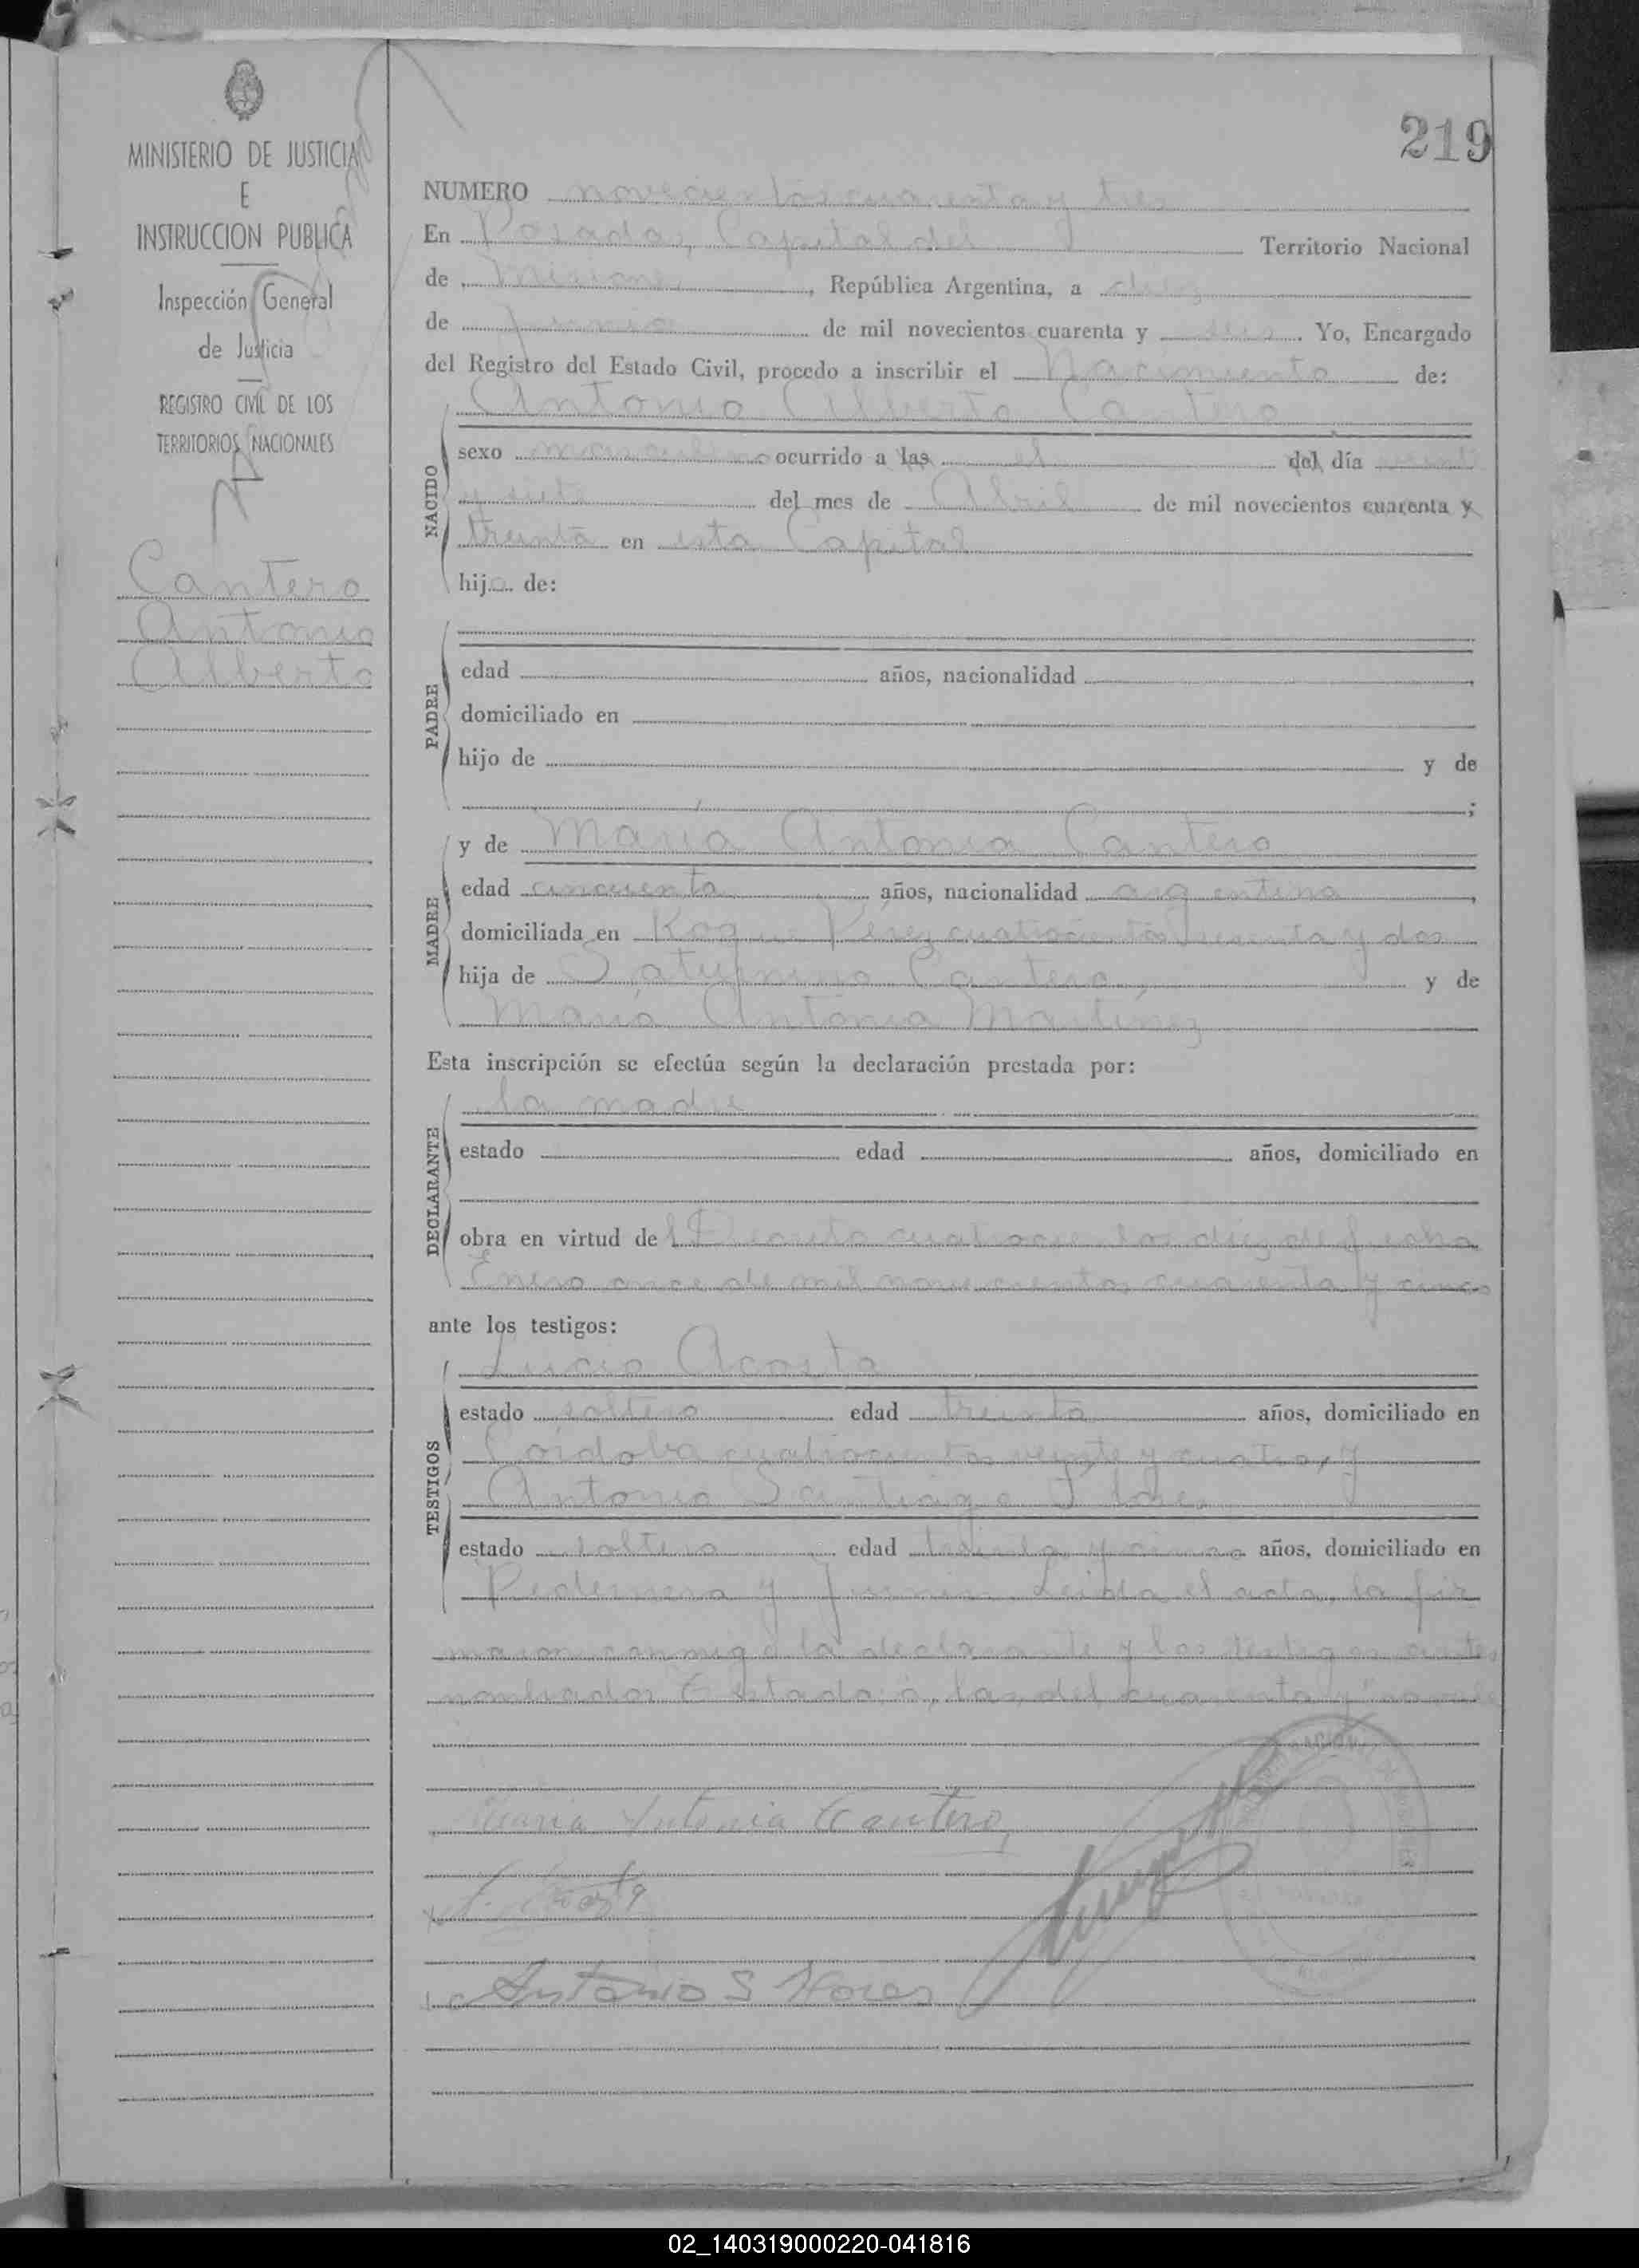 219
MINISTERIO DE JUSTICIA
E
INSTRUCCION PUBLICA
Inspección General
de Justicia
REGISTRO CIVIL DE LOS
TERRITORIOS NACIONALES
Cantero
Antonio
Alberto
NUMERO novecientos cuarenta y tres
En Posadas, Capital del Territorio Nacional
de Misiones, República Argentina, a diez
de Junio de mil novecientos cuarenta y seis. Yo, Encargado
del Registro del Estado Civil, procedo a inscribir el Nacimiento de:
Antonio Alberto Cantero
NACIDO
sexo masculino ocurrido a las el del día veinti
y siete del mes de Abril de mil novecientos cuarenta y
treinta en esta Capital
hijo de:
PADRE
edad años, nacionalidad
domiciliado en
hijo de y de
;
MADRE
y de María Antonia Cantero
edad cincuenta años, nacionalidad argentina
domiciliada en Roque Pérez cuatrocientos sesenta y dos
hija de Saturnino Cantero y de
María Antonia Martínez
Esta inscripción se efectúa según la declaración prestada por:
DECLARANTE
la madre
estado edad años, domiciliado en
obra en virtud del Decreto cuatrocientos diez de fecha
Enero once de mil novecientos cuarenta y cinco
ante los testigos:
TESTIGOS
Lucio Acosta
estado soltero edad treinta años, domiciliado en
Córdoba cuatrocientos veinte y cuatro, y
Antonio Santiago Flores
estado soltero edad treinta y cinco años, domiciliado en
Pedernera y Junín. Leída el acta, la fir
maron conmigo la declarante y los testigos antes
nombrados. Testado: a, las, del cuarenta y no vale
Maria Antonia Cantero
L. Acosta
Antonio S Flores
02_140319000220-041816